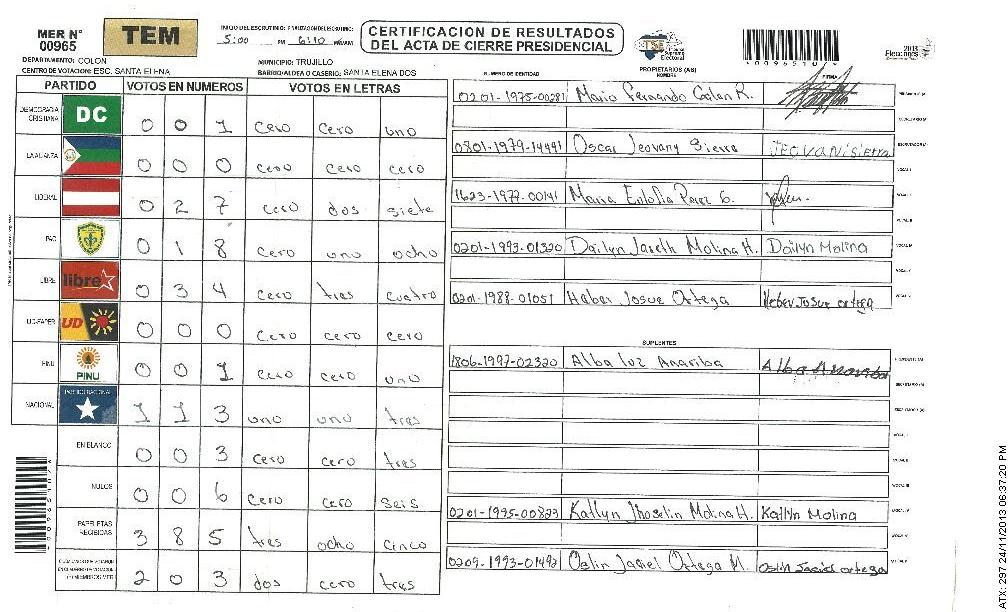 MER N° 00965
TEM
INICIO DEL ESCRUTINIO: 5:00 PM FINALIZACION DEL ESCRUTINIO: 6:10 PM/AM
CERTIFICACION DE RESULTADOS
DEL ACTA DE CIERRE PRESIDENCIAL
TSE Tribunal Supremo Electoral
2013 Elecciones
DEPARTAMENTO: COLON
MUNICIPIO: TRUJILLO
CENTRO DE VOTACION: ESC. SANTA ELENA
BARRIO/ALDEA O CASERIO: SANTA ELENA DOS
PARTIDO VOTOS EN NUMEROS VOTOS EN LETRAS
DEMOCRACIA CRISTIANA DC 0 0 1 cero cero uno
LA ALIANZA 0 0 0 cero cero cero
LIBERAL 0 2 7 cero dos siete
PAC 0 1 8 cero uno ocho
LIBRE libre 0 3 4 cero tres cuatro
UD-FAPER UD 0 0 0 cero cero cero
PINU PINU 0 0 1 cero cero uno
NACIONAL PARTIDO NACIONAL 1 1 3 uno uno tres
EN BLANCO 0 0 3 cero cero tres
NULOS 0 0 6 cero cero seis
PAPELETAS RECIBIDAS 3 8 5 tres ocho cinco
2 0 3 dos cero tres
NUMERO DE IDENTIDAD PROPIETARIOS (AS) NOMBRE FIRMA
0201-1975-00281 Mario Fernando Galan R.
0801-1979-14491 Oscar Jeovany Sierra JEOVANI Sierra
1623-1977-00141 Maria Eulofia Perez G.
0201-1993-01320 Dailyn Jareth Molina H. Dailyn Molina
0201-1988-01051 Heber Josue Ortega Heber Josue ortega
SUPLENTES
1806-1997-02320 Alba luz Anariba Alba Anariba
0201-1995-00823 Katlyn Jhoselin Molina H. Katlyn Molina
0209-1993-01492 Oslin Jaciel Ortega M. Oslin Jaciel ortega
ATX: 297 24/11/2013 06:37:20 PM